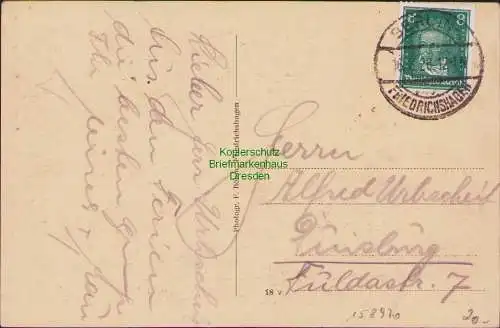 Lieber Herr Urbscheit
Aus den Ferien
die besten Grüße
Ihr
Photogr. F. Friedrichshagen
Kopierschutz
Briefmarkenhaus
Dresden
8
8
BERLIN
FRIEDRICHSHAGEN
Herrn
Alfred Urbscheit
Duisburg
Fuldastr. 7
18 v
158920
20.-